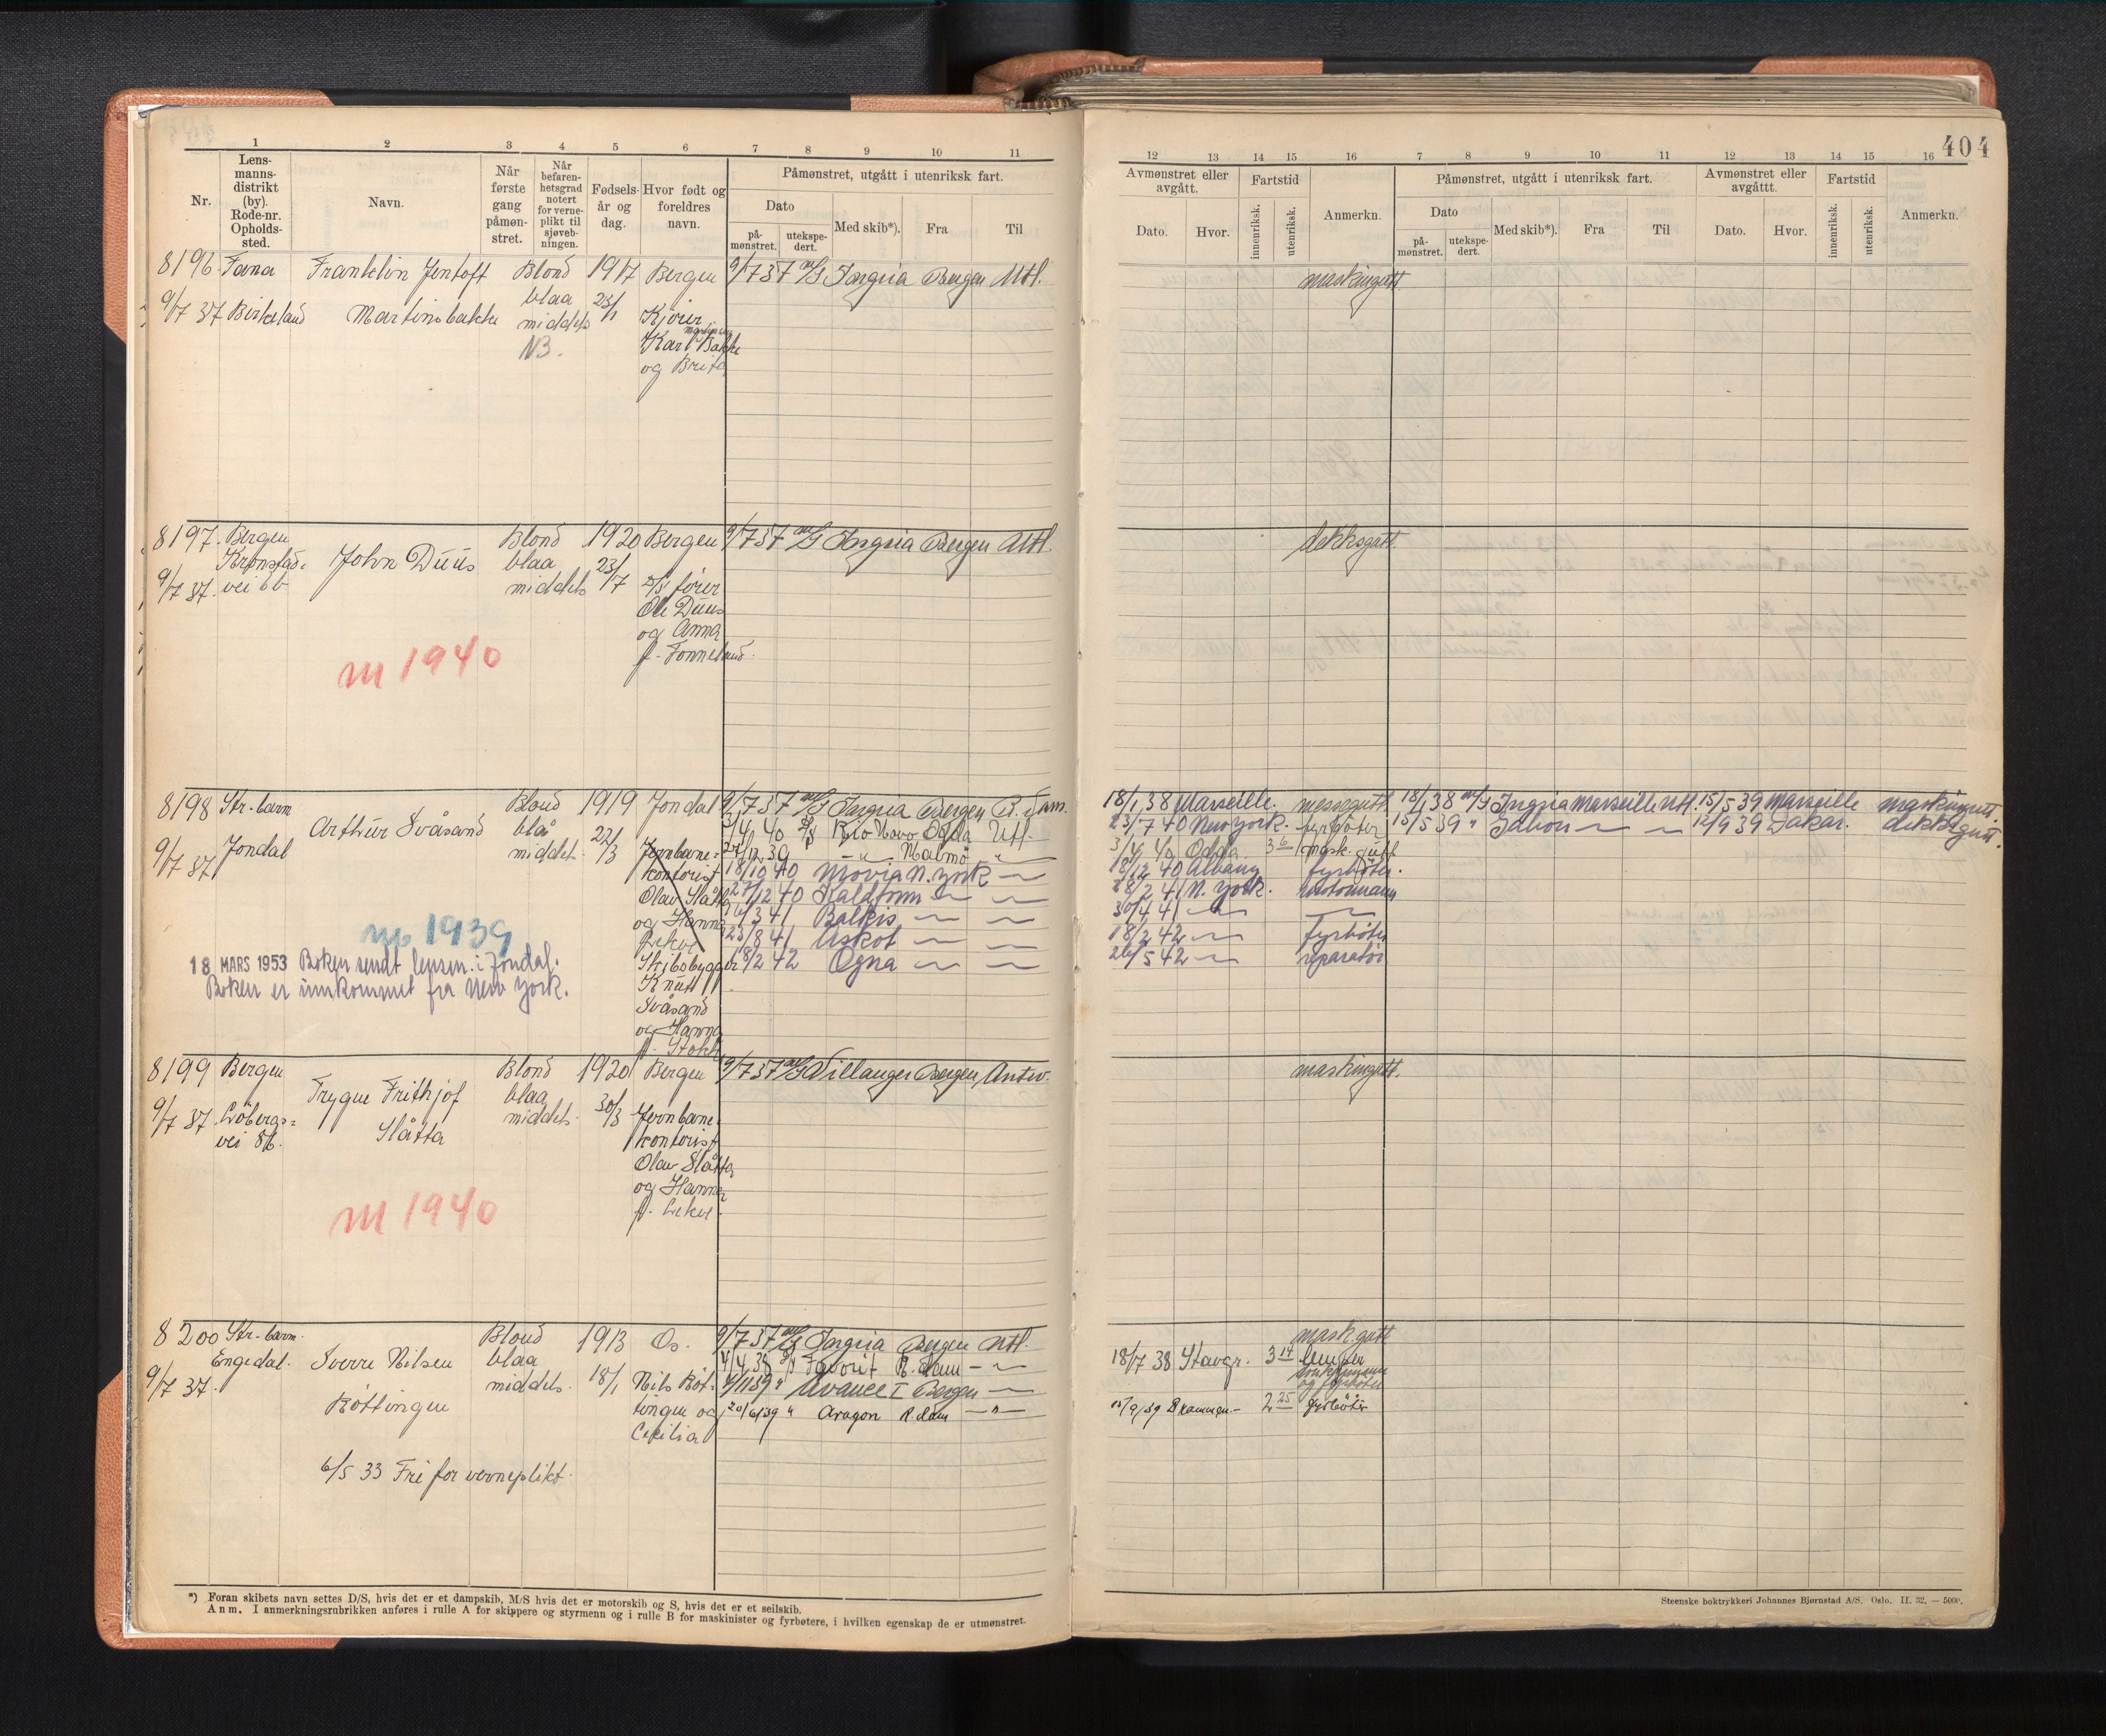 404
1 2 3 4 5 6 7 8 9 10 11
Nr.
Lens-
manns-
distrikt
(by).
Rode-nr.
Opholds-
sted.
Navn.
Når
første
gang
påmøn-
stret.
Når
befaren-
hetsgrad
notert
for verne-
plikt til
sjøveb-
ningen.
Fødsels-
år og
dag.
Hvor født og
foreldres
navn.
Påmønstret, utgått i utenriksk fart.
Dato
på-
mønstret.
utekspe-
dert.
Med skib*).
Fra
Til
12 13 14 15 16 7 8 9 10 11 12 13 14 15 16
Avmønstret eller
avgått.
Dato.
Hvor.
Fartstid
innenriksk.
utenriksk.
Anmerkn.
Påmønstret, utgått i utenriksk fart.
Dato
på-
mønstret.
utekspe-
dert.
Med skib*).
Fra
Til
Avmønstret eller
avgåttt.
Dato.
Hvor.
Fartstid
innenriksk.
utenriksk.
Anmerkn.
8196 Fana Franklin Jentoft Blond 1917 Bergen 9/7 37 m/s Ingria Bergen Utl. maskingutt
9/7 37 Birkeland Martinsbakke blaa 23/1 Kjörer
middels Karl Martinsbakke
NB. og Brita
8197. Bergen John Duus Blond 1920 Bergen 9/7 37 m/s Ingria Bergen Utl. dekksgutt.
Kronstad- blaa 23/7
9/7 37. vei 6 b. middels s/s förer
Ole Duus
og Anna
f. Fonneland.
m 1940
8198 Str-barm Arthur Svåsand Blond 1919 Jondal 9/7 37 m/s Ingria Bergen R.dam. 18/1 38 Marseille. messegutt 18/1 38 m/s Ingria Marseille Utl. 15/5 39 Marseille maskingutt.
3/4 40 d/s Bro Navo Odda Utl 23/7 40 New York. fyrböter 15/5 39 " " 12/9 39 Dakar. dekksgutt.
9/7 37 Jondal blå 22/3 Jernbane- 27/12 39 Malmö " 3/4 40 Odda 3 6 mask. gutt
middel. kontorist 18/10 40 Movia N. York 18/12 40 Albany fyrböter.
Olav Slåtta 27/12 40 Kaldfonn 28/2 41 N. York. motormann
og Hanna 6/3 41 Balkis 30/4 41
Lekve 23/8 41 Askot 18/2 42 fyrböter
Skibsbygger 18/2 42 Ogna 26/5 42 reparatör
Knut
Svåsand
og Hanna
f. Stokk
m 1939
18 MARS 1953 Boken sendt lensm. i Jondal.
Boken er innkommet fra New York.
8199 Bergen Trygve Frithjof Blond 1920 Bergen 9/7 37 m/s Villanger Bergen Antw. maskingutt.
Slåtta blaa 30/3
9/7 37. Löbergs- middels Jernbane-
vei 86. kontorist
Olav Slåtta
og Hanna
f. Lekve.
m 1940
8200 Str-barm. Sverre Nilsen Blond 1913 Os. 9/7 37 m/s Ingria Bergen Utl. mask gutt
Engedal. Röttingen blaa 18/1 4/4 38 d/s Favorit R.dam 18/7 38 Stavgr. 3 14 lemper
9/7 37. middels Nils Röt- 4/1 39 " Avance I Bergen og fyrböter
tingen og 20/6 39 " Aragon R.dam
Cecilia 2 25 fyrböter
6/5 33 Fri for verneplikt.
*) Foran skibets navn settes D/S, hvis det er et dampskib, M/S hvis det er motorskib og S, hvis det er et seilskib.
Anm. I anmerkningsrubrikken anføres i rulle A for skippere og styrmenn og i rulle B for maskinister og fyrbøtere, i hvilken egenskap de er utmønstret.
Steenske boktrykkeri Johannes Bjørnstad A/S. Oslo. II. 32. — 5000.